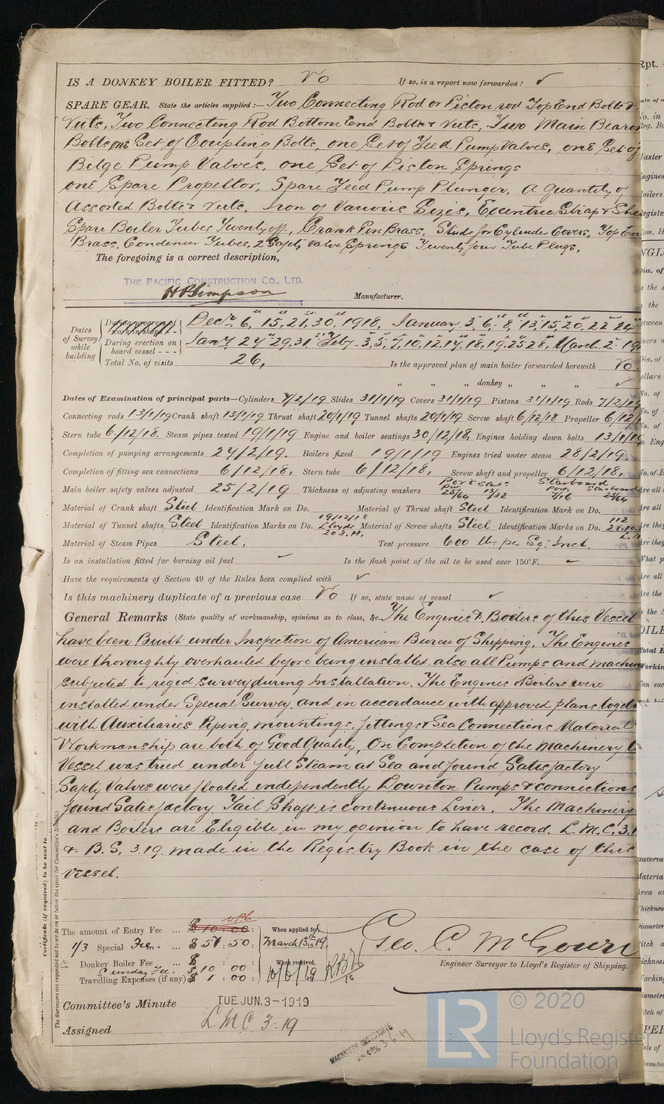 IS A DONKEY BOILER FITTED? No If so, is a report now forwarded? ✓
SPARE GEAR. State the articles supplied:— Two Connecting Rod or Piston rod Top End Bolts &
Nuts, Two Connecting Rod Bottom End Bolts & Nuts, Two Main Bearin
Bolts, one Set of Coupling Bolts, one Set of Feed Pump Valves, one Set of
Bilge Pump Valves, one Set of Piston Springs
one Spare Propellor, Spare Feed Pump Plunger, A Quantity of
Assorted Bolts & Nuts, Iron of Various Sizes, Eccentric Strap &
Spare Boiler Tubes Twenty off, Crank Pin Brass, Studs for Cylinder Covers, Top En
Brass, Condenser Tubes, 2 Safty Valve Springs Twenty four Tube Plugs,
The foregoing is a correct description,
THE PACIFIC CONSTRUCTION CO., LTD.
H P Simpson Manufacturer.
Dates of Survey while building
Decr. 6, 15, 21, 30, 1918, January 3, 6, 8, 13, 15, 20, 22 24
During erection on board vessel - - - Jany 24 29, 31 Feby 3, 5, 7, 10, 12, 14, 18, 19, 25 28, March 2 19
Total No. of visits 26, Is the approved plan of main boiler forwarded herewith No
" " donkey " " " ✓
Dates of Examination of principal parts—Cylinders 7/2/19 Slides 31/1/19 Covers 31/1/19 Pistons 31/1/19 Rods 7/2/19
Connecting rods 13/1/19 Crank shaft 13/1/19 Thrust shaft 20/1/19 Tunnel shafts 20/1/19 Screw shaft 6/12/18 Propeller 6/12/
Stern tube 6/12/18. Steam pipes tested 19/1/19 Engine and boiler seatings 30/12/18. Engines holding down bolts 13/1/19
Completion of pumping arrangements 24/2/19. Boilers fixed 19/1/19 Engines tried under steam 28/2/19.
Completion of fitting sea connections 6/12/18, Stern tube 6/12/18, Screw shaft and propeller 6/12/18,
Main boiler safety valves adjusted 25/2/19 Thickness of adjusting washers
Material of Crank shaft Steel Identification Mark on Do. Material of Thrust shaft Steel Identification Mark on Do.
Material of Tunnel shafts Steel Identification Marks on Do. 19/12/18 Lloyds Material of Screw shafts Steel Identification Marks on Do.
Material of Steam Pipes Steel, Test pressure 600 lbs per Sq. Inch.
Is an installation fitted for burning oil fuel – Is the flash point of the oil to be used over 150°F. –
Have the requirements of Section 49 of the Rules been complied with ✓
Is this machinery duplicate of a previous case No If so, state name of vessel ✓
General Remarks (State quality of workmanship, opinions as to class, &c. The Engines & Boilers of this Vessel
have been Built under Inspection of American Bureau of Shipping. The Engines
were thoroughly overhauled before being installed also all Pumps and machin
subjected to rigid survey during Installation. The Engines & Boilers were
installed under Special Survey and in accordance with approved plans togeth
with Auxiliaries Piping, mountings, fittings & Sea Connections Material
Workmanship are both of Good Quality, On Completion of the Machinery t
Vessel was tried under full Steam at Sea and found Satisfactory
Safty Valves were floated independently Downton Pumps & connections
found Satisfactory. Tail Shaft is continuous Liner. The Machinery
and Boilers are Eligible in my opinion to have record L.M.C. 3.1
& B.S. 3.19. made in the Registry Book in the case of this
Vessel.
The amount of Entry Fee ... $ 10 . 00 : When applied for,
1/3 Special Fee ... $ 51 . 50 : March 13th 19.
Donkey Boiler Fee ... $ : : When received,
Sunday Fee. $ 10 00
Travelling Expenses (if any) $ 1 : 00 : 10/6/19
Geo. C. McGown
Engineer Surveyor to Lloyd's Register of Shipping.
Committee's Minute TUE. JUN. 3 - 1919
Assigned L M C 3.19
© 2020
LR Lloyd's Register
Foundation